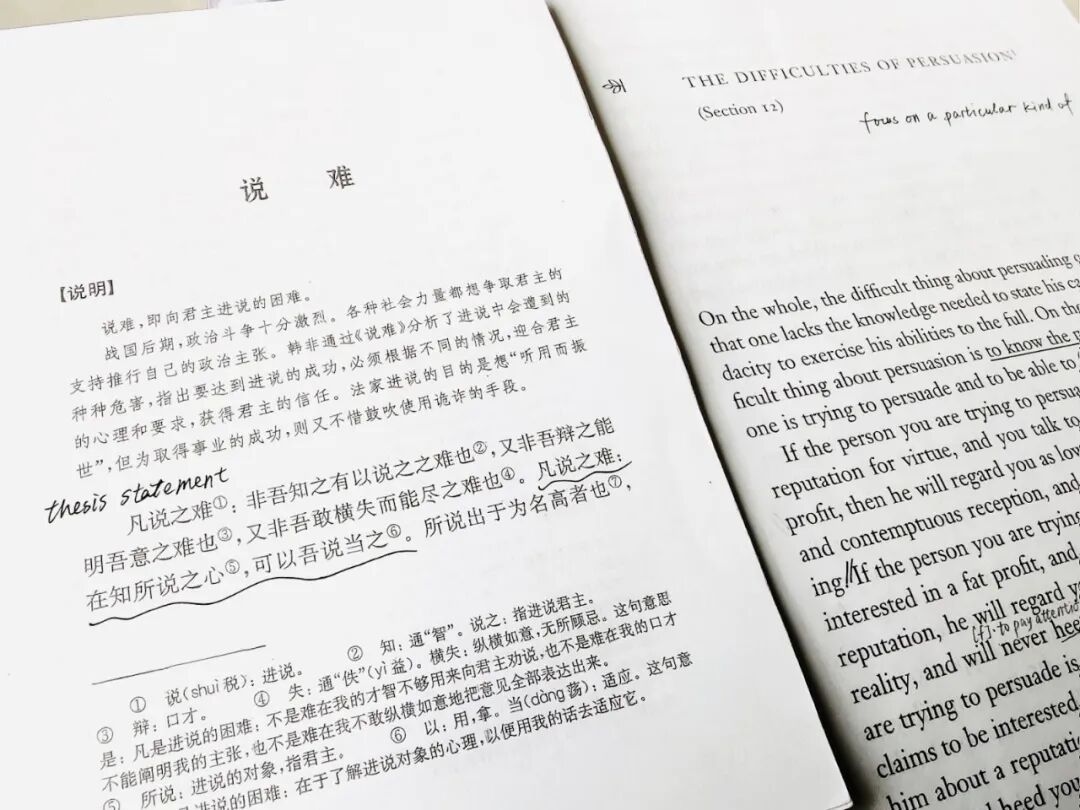 说 难
【说明】
说难，即向君主进说的困难。
战国后期，政治斗争十分激烈。各种社会力量都想争取君主的
支持推行自己的政治主张。韩非通过《说难》分析了进说中会遭到的
种种危害，指出要达到进说的成功，必须根据不同的情况，迎合君主
的心理和要求，获得君主的信任。法家进说的目的是想“听用而振
世”，但为取得事业的成功，则又不惜鼓吹使用诡诈的手段。
thesis statement
凡说之难①：非吾知之有以说之之难也②，又非吾辩之能
明吾意之难也③，又非吾敢横失而能尽之难也④。凡说之难：
在知所说之心⑤，可以吾说当之⑥。所说出于为名高者也⑦，
① 说(shuì 税)：进说。 ② 知：通“智”。说之：指进说君主。
③ 辩：口才。 ④ 失：通“佚”(yì 益)。横失：纵横如意，无所顾忌。这句意思
是：凡是进说的困难：不是难在我的才智不够用来向君主劝说，也不是难在我的口才
不能阐明我的主张，也不是难在我不敢纵横如意地把意见全部表达出来。
⑤ 所说：进说的对象，指君主。 ⑥ 以：用，拿。当(dàng 荡)：适应。这句意
是进说的困难：在于了解进说对象的心理，以便用我的话去适应它。
THE DIFFICULTIES OF PERSUASION¹
(Section 12)
focus on a particular kind of
On the whole, the difficult thing about persuading
that one lacks the knowledge needed to state his ca
dacity to exercise his abilities to the full. On the
ficult thing about persuasion is to know the
one is trying to persuade and to be able to
If the person you are trying to persua
reputation for virtue, and you talk to
profit, then he will regard you as low
and contemptuous reception, and
ing // If the person you are trying
interested in a fat profit, and
reputation, he will regard yo
[if]: to pay attentio
reality, and will never hee
are trying to persuade is
claims to be interested
him about a reputatio
heed you